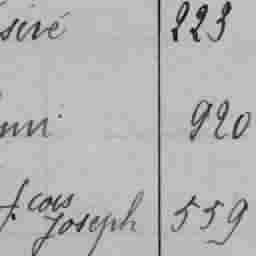 siré 223
nri 920
f. cois Joseph 559